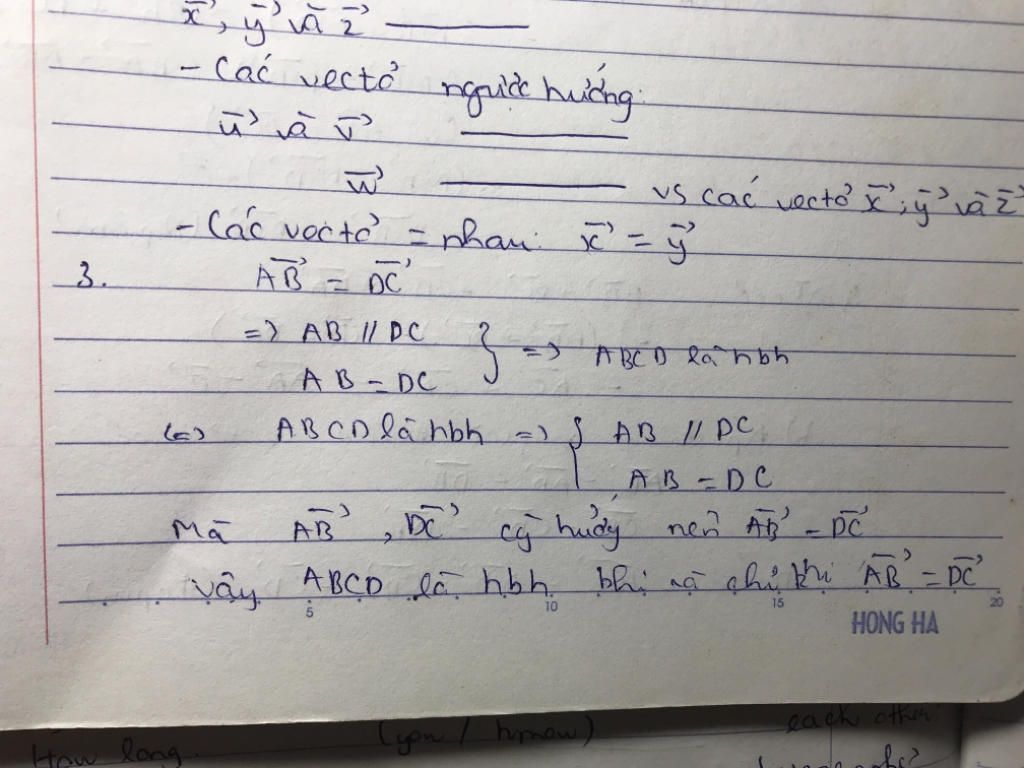 x⃗, y⃗ và z⃗ ———
- Các vectơ ngược hướng:
u⃗ và v⃗ ———
w⃗ ——— vs các vectơ x⃗, y⃗ và z⃗
- Các vectơ = nhau: x⃗ = y⃗
3. AB⃗ = DC⃗
=> AB // DC
AB = DC } => ABCD là hbh
(<=) ABCD là hbh => { AB // DC
AB = DC
Mà AB⃗, DC⃗ cg hướng nên AB⃗ = DC⃗
vậy ABCD là hbh khi và chỉ khi AB⃗ = DC⃗
5 10 15 20
HONG HA
each other
How long (you / human)